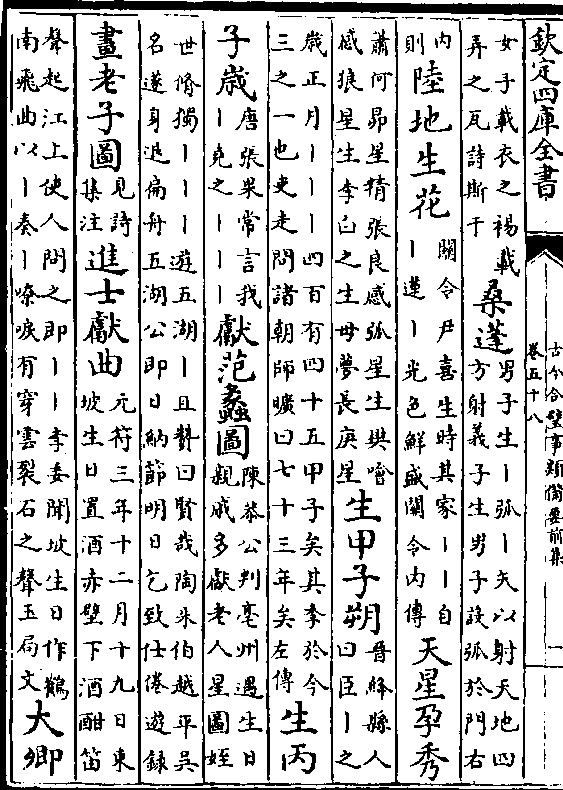 欽定四庫全書
古今合璧事類備要前集
卷五十八
一
女子載衣之裼載
弄之瓦詩斯干
桑蓬
男子生丨弧丨矢以射天地四
方射義子生男子設弧於門右
內
則
陸地生花
關令尹喜生時其家丨丨自
丨蓮丨光色鮮盛關令內傳
天星孕秀
蕭何昴星精張良感弧星生樊噲
感狼星生李白之生母夢長庚星
生甲子朔
晉絳縣人
曰臣丨之
歲正月丨丨丨四百有四十五甲子矣其季於今
三之一也吏走問諸朝師曠曰七十三年矣左傳
生丙
子歲
唐張果常言我
丨堯之丨丨丨
獻范蠡圖
陳恭公判亳州遇生日
親戚多獻老人星圖姪
世脩獨丨丨丨遊五湖丨且贊曰賢哉陶朱伯越平吳
名遂身退扁舟五湖公即日納節明日乞致仕倦遊錄
畫老子圖
見詩
集注
進士獻曲
元符三年十二月十九日東
坡生日置酒赤壁下酒酣笛
聲起江上使人問之即丨丨李委聞坡生日作鶴
南飛曲以丨奏丨嘹唳有穿雲裂石之聲玉局文
大卿